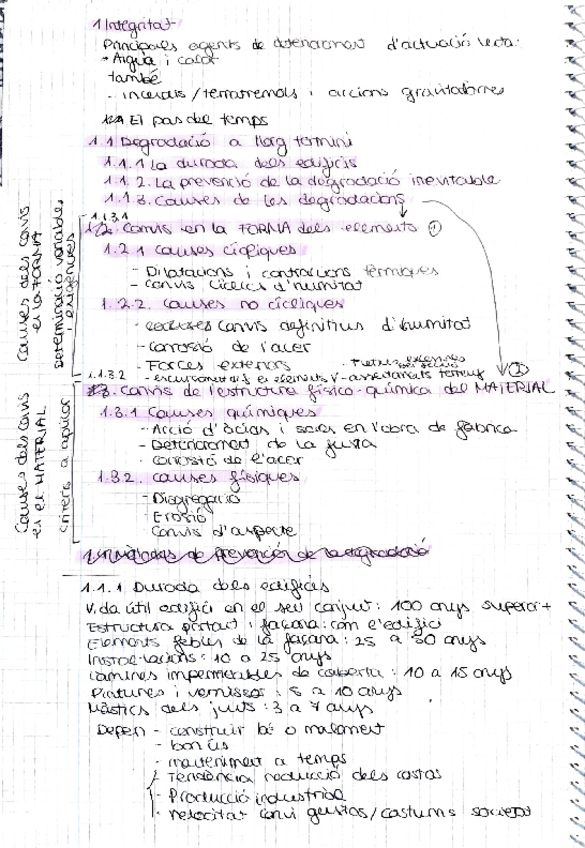 1 Integritat
Principals agents de deteriorament d'actuació lecta:
- Aigua i calor
també
- incendis / terratremols i accions gravitatòries
El pas del temps
1.1 Degradació a llarg termini
1.1.1 La durada dels edificis
1.1.2. La prevenció de la degradació inevitable
1.1.3. Causes de les degradacions
1.1.3.1
Canvis en la FORMA dels elements ①
1.2.1 Causes cícliques
- Dilatacions i contraccions tèrmiques
- canvis cíclics d'humitat
1.2.2. Causes no cícliques
- canvis definitius d'humitat
- corrosió de l'acer
- Forces exteriors
1.1.3.2
Canvis de l'estructura físico-química del MATERIAL ②
1.3.1 Causes químiques
- Acció d'àcids i sals en l'obra de fàbrica
- Deteriorament de la fusta
- corrosió de l'acer
1.3.2. causes físiques
- Disgregació
- Erosió
- Canvis d'aspecte
Causes dels canvis
en la FORMA
Determinació variables
i exigències
Causes dels canvis
en el MATERIAL
criteris a aplicar
1.1.1 Durada dels edificis
Vida útil edifici en el seu conjut: 100 anys superior +
Estructura portant i façana: com l'edifici
Elements febles de la façana: 25 a 50 anys
Instal·lacions: 10 a 25 anys
Làmines impermeables de coberta: 10 a 15 anys
Pintures i vernissos: 5 a 10 anys
Màstics dels junts: 3 a 7 anys
Depèn - construir bé o malament
- bon ús
- manteniment a temps
- Tendència reducció dels costos
- Producció industrial
- velocitat canvi gustos/costums societat